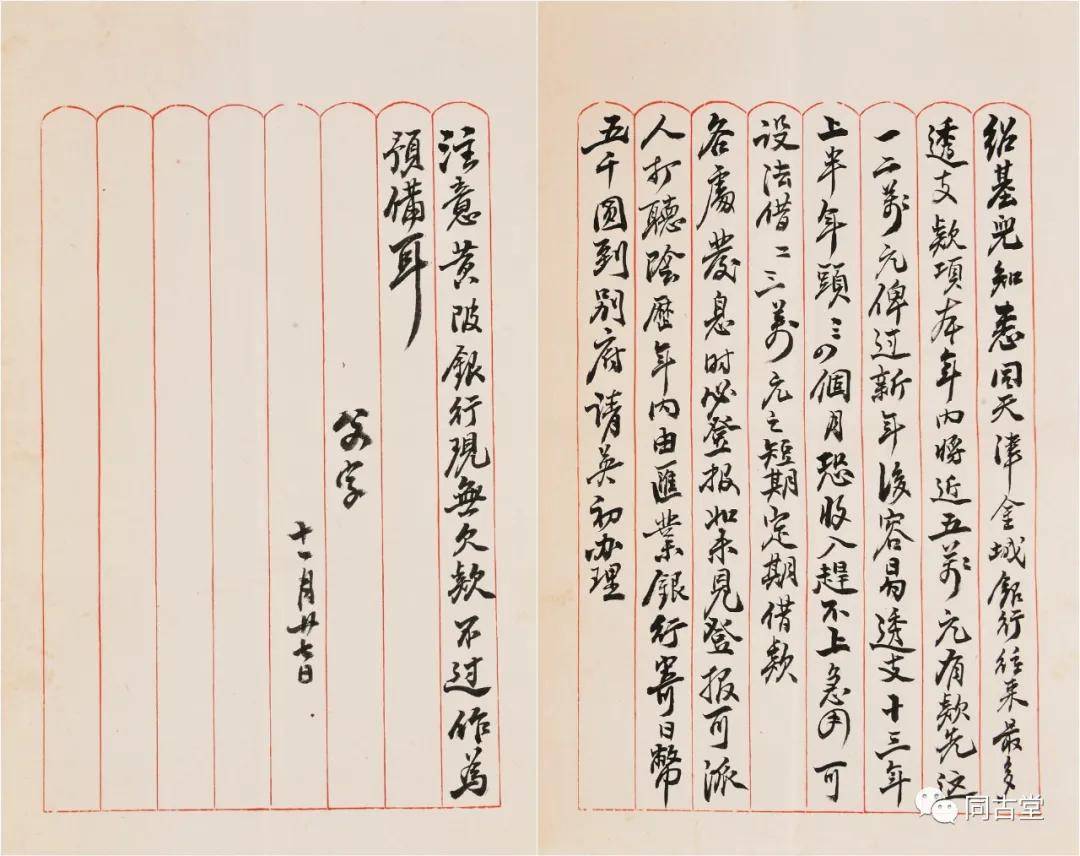 绍基兒知悉因天津金城銀行往来最多
透支款項本年内將近五萬元有款先还
一二萬元俾过新年後容易透支十三年
上半年頭三四個月恐收入趕不上急用可
设法借二三萬元之短期定期借款
各處發息时必登报如未見登报可派
人打聽陰歷年内由匯業銀行寄日幣
五千圆到别府请英初办理
注意黄陂銀行現無欠款不过作為
預備耳
父字
十一月廿七日
同古堂